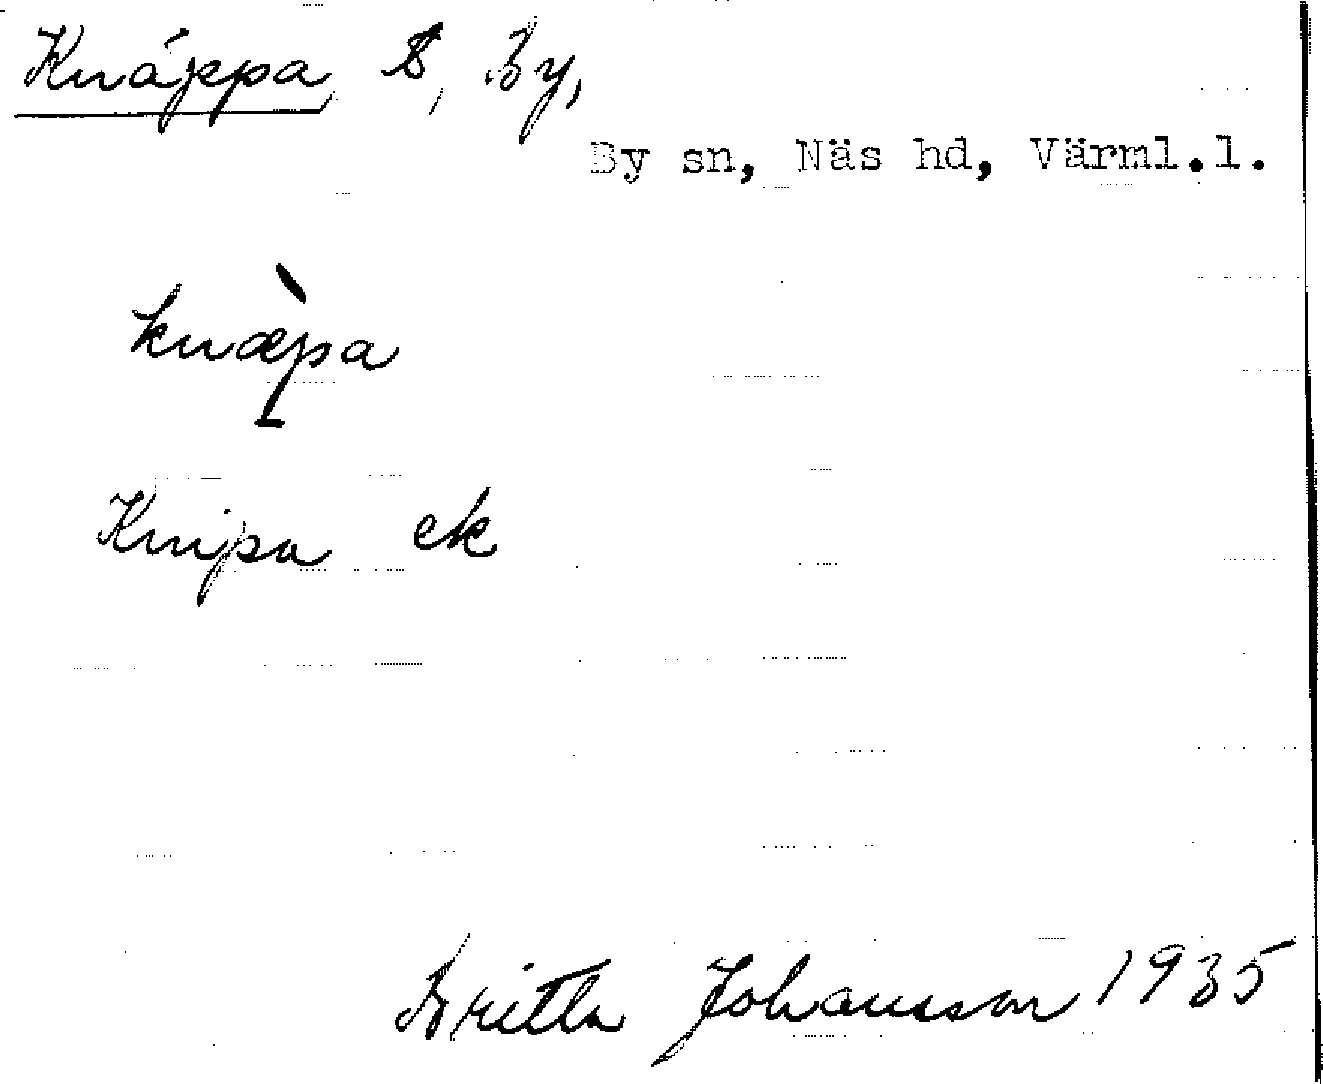 Knäppa, S, By,
By sn, Näs hd, Värml.l.
knæ̀pa
Knipa ek
Britta Johansson 1935